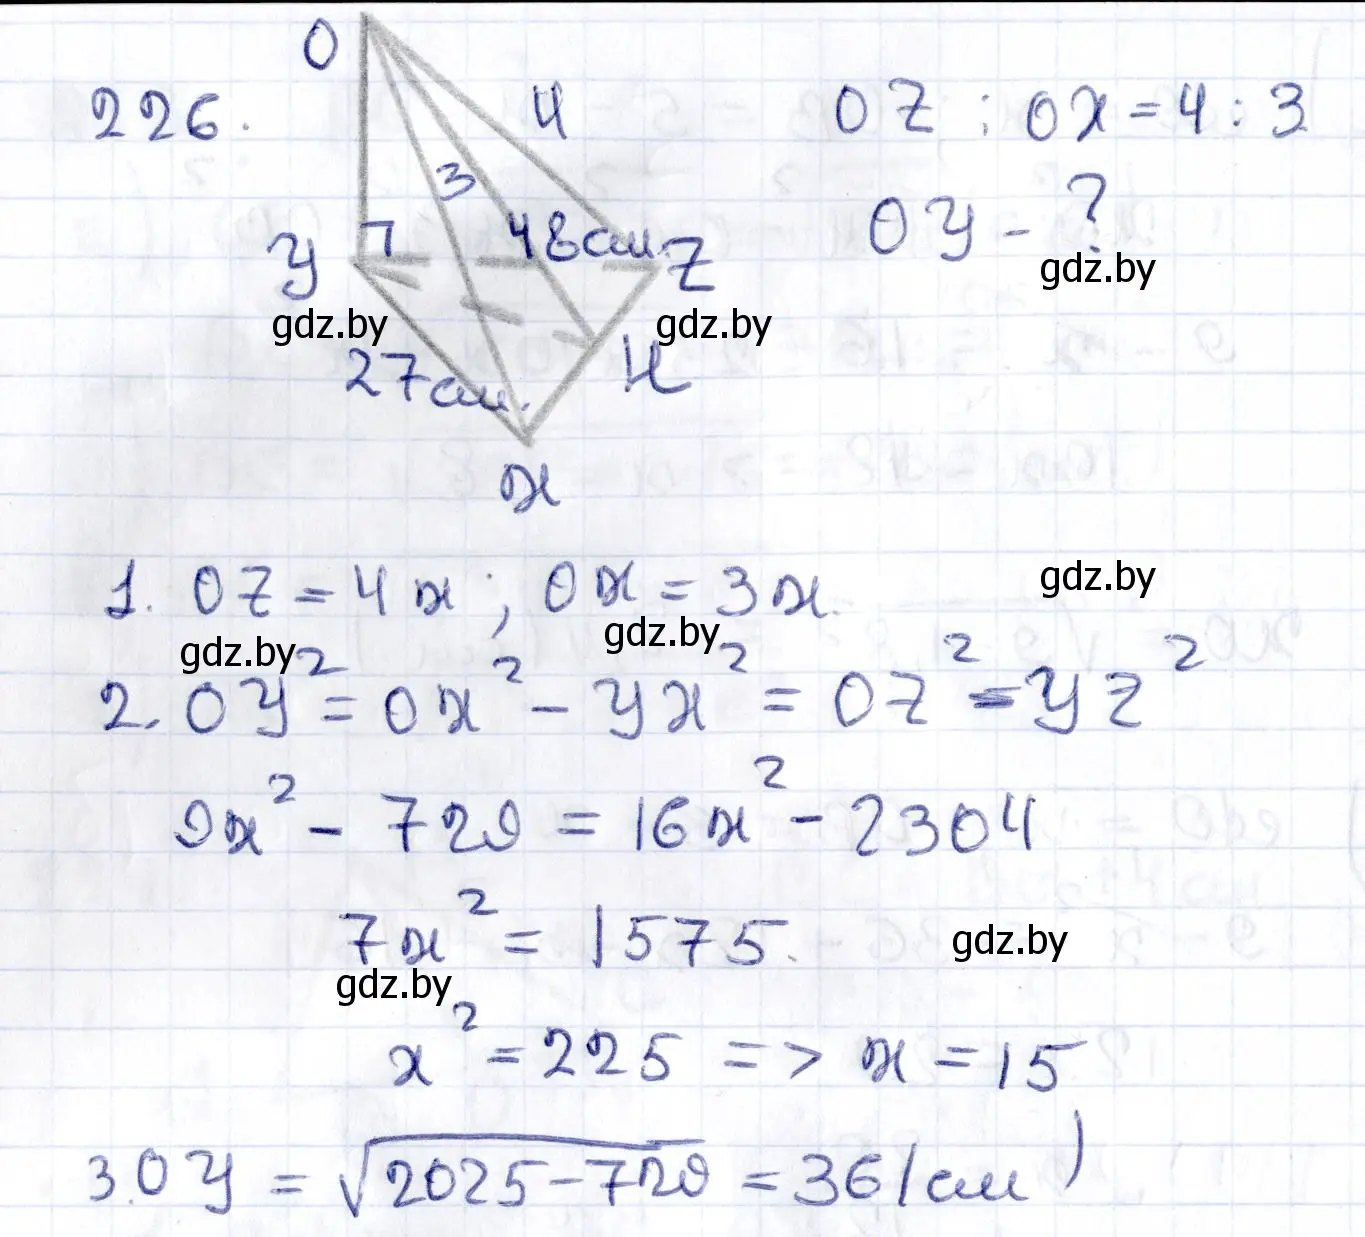 O
226.
4
OZ : OX = 4 : 3
3
Y
7
48 см.
Z
OY - ?
gdz.by
gdz.by
gdz.by
27 см.
H
X
1. OZ = 4x ; OX = 3x.
gdz.by
gdz.by
gdz.by
2. OY² = OX² - YX² = OZ² - YZ²
9x² - 729 = 16x² - 2304
7x² = 1575.
gdz.by
gdz.by
x² = 225 => x = 15
3. OY = √2025-729 = 36 (см)